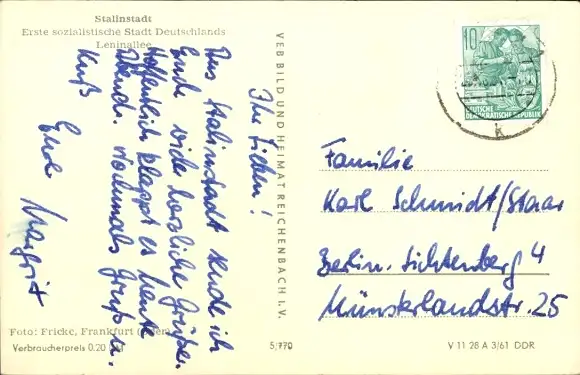 Stalinstadt
Erste sozialistische Stadt Deutschlands
Leninallee
Ihr Lieben!
Aus Stalinstadt sende ich
Euch viele herzliche Grüße.
Hoffentlich klappt es heute
Abend. Nochmals Gruß u.
Kuß
Eure
Margrit
VEB BILD UND HEIMAT REICHENBACH I. V.
10
DEUTSCHE
DEMOKRATISCHE REPUBLIK
k
Familie
Karl Schmidt/Staar
Berlin-Lichtenberg 4
Münsterlandstr. 25
Foto: Fricke, Frankfurt (Oder)
Verbraucherpreis 0.20 DM
5/770
V 11 28 A 3/61 DDR